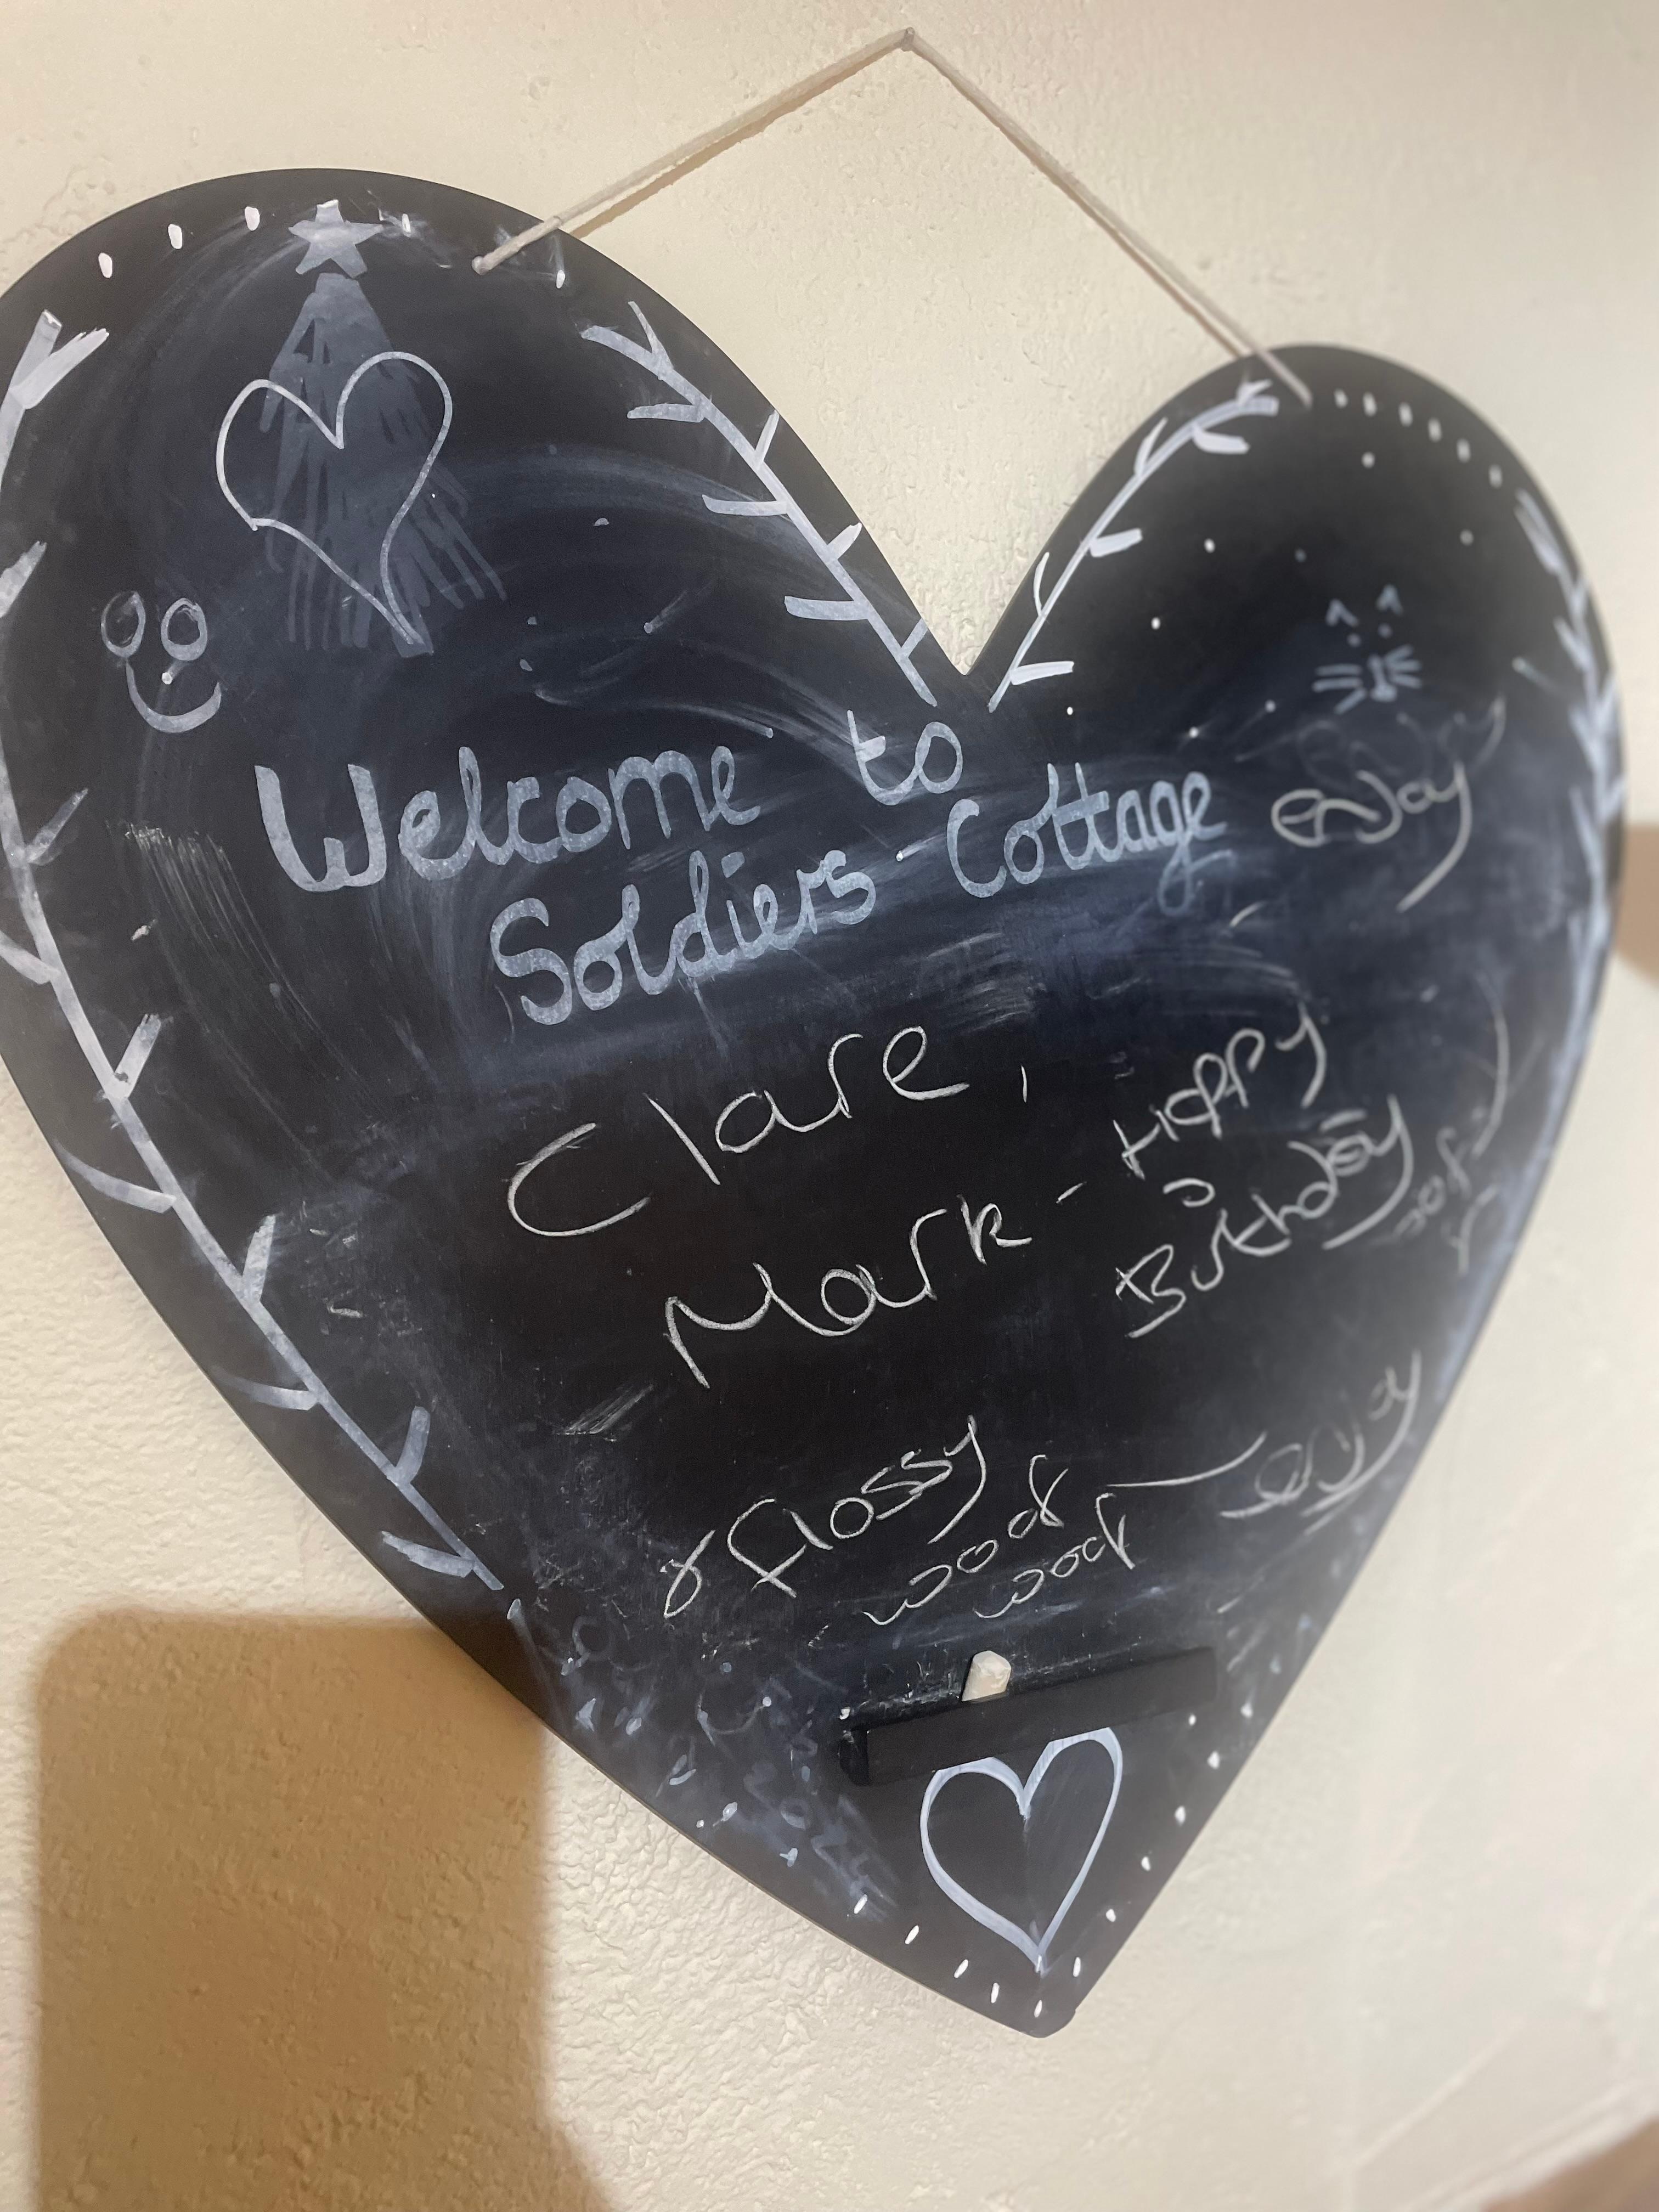 Welcome to
Soldiers Cottage
enjoy
Clare,
Mark - Happy
Birthday
& flossy
woof
woof
enjoy